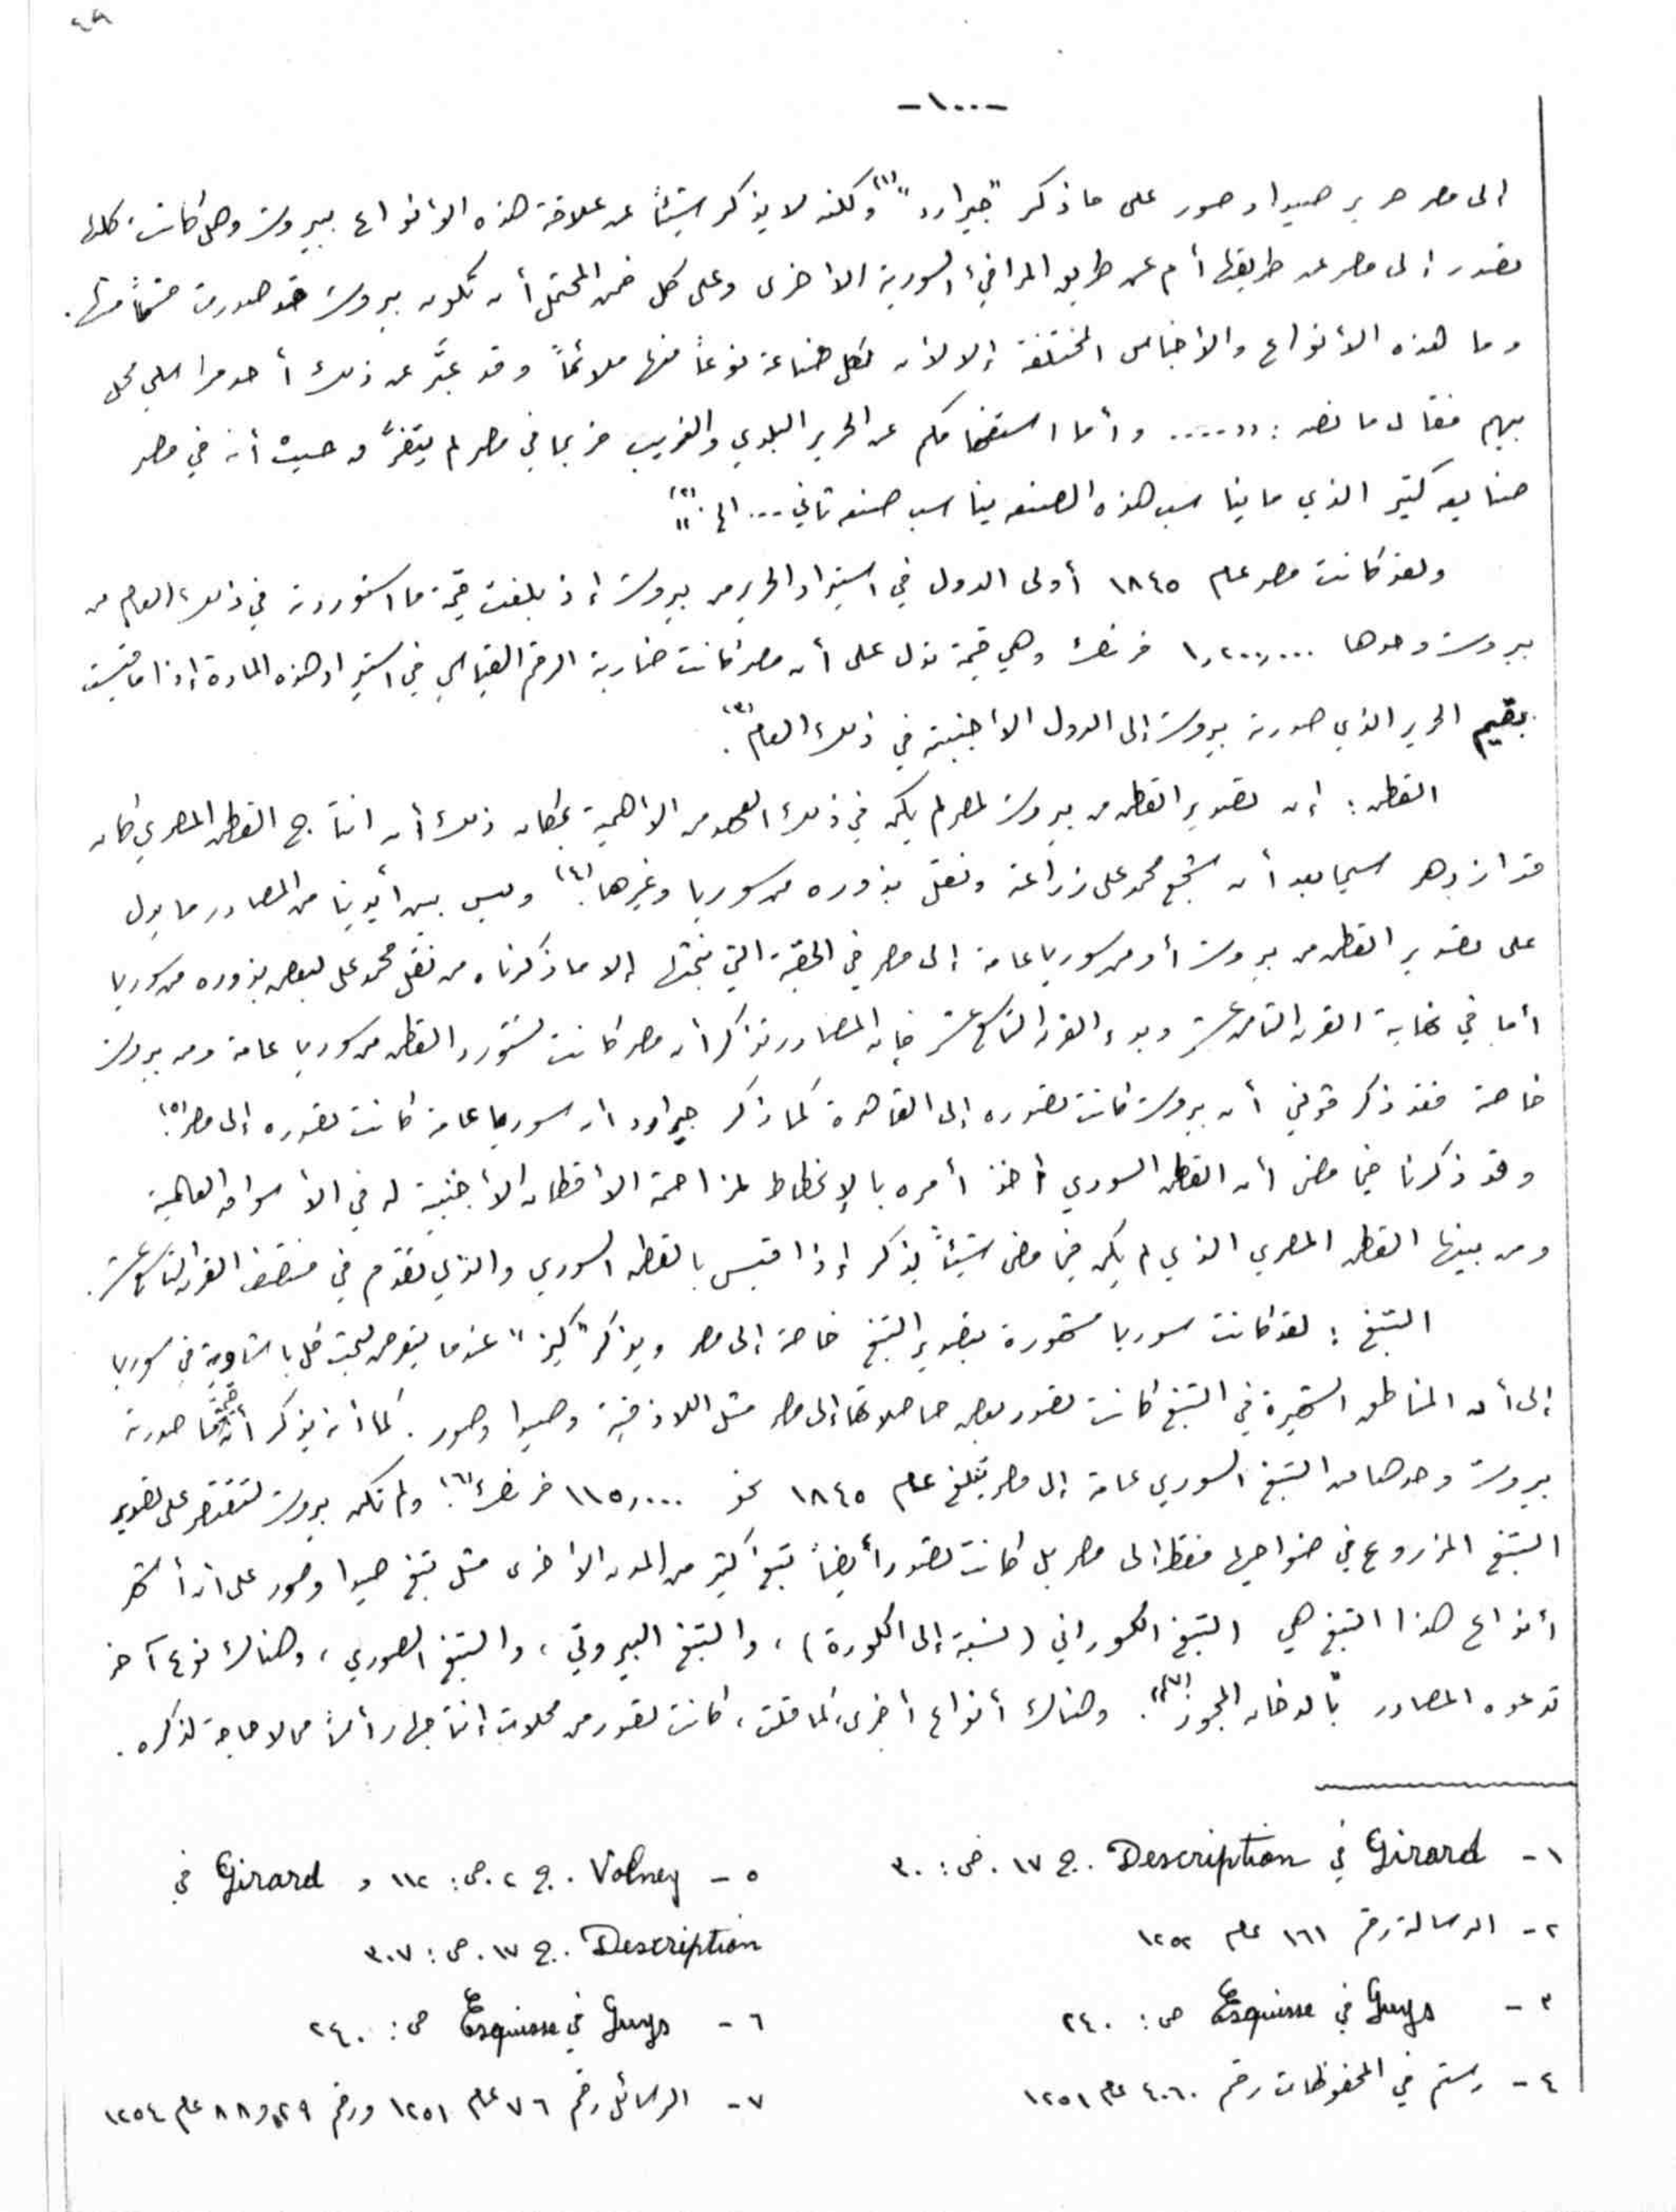 ٤٩
-١٠٠-
إلى مصر حرير صيدا وصور على ما ذكر "جيرارد"(١) ولكنه لا يذكر شيئاً عن علاقة هذه الأنواع ببيروت وهل كانت كلها
تصدر إلى مصر عن طريقها أم عن طريق المرافئ السورية الاخرى وعلى كل فمن المحتمل أن تكون بيروت قد صدرت قسماً منها.
وما هذه الأنواع والأجناس المختلفة إلا لأن لكل صناعة نوعاً منها ملائماً وقد عبَّر عن ذلك أحد مراسلي محل
بيهم فقال ما نصه: ((..... وأما استفهامكم عن الحرير البلدي والغريب فربما في مصر لم يتفرَّق حيث أن في مصر
صنايع كتير الذي ما يناسب هذه الصنعه يناسب صنعه تاني ... الخ.))(٢)
ولقد كانت مصر عام ١٨٤٥ أولى الدول في استيراد الحرير من بيروت إذ بلغت قيمة ما استوردته في ذلك العام من
بيروت وحدها ١,٢٠٠,٠٠٠ فرنك وهي قيمة تدل على أن مصر كانت ضاربة الرقم القياسي في استيراد هذه المادة إذا ما قيست
بقيم الحرير الذي صدرته بيروت إلى الدول الاجنبية في ذلك العام(٣).
القطن: إن تصدير القطن من بيروت لمصر لم يكن في ذلك العهد من الاهمية بمكان ذلك أن انتاج القطن المصري كان
قد ازدهر سيما بعد أن شجع محمد علي زراعته ونقل بذوره من سوريا وغيرها(٤). وليس بين أيدينا من المصادر ما يدل
على تصدير القطن من بيروت أو من سوريا عامة إلى مصر في الحقبة التي نبحثها إلا ما ذكرناه من نقل محمد علي لبعض بذوره من سوريا
أما في نهاية القرن الثامن عشر وبدء القرن التاسع عشر فإن المصادر تذكر أن مصر كانت تستورد القطن من سوريا عامة ومن بيروت
خاصة فقد ذكر ڤولني أن بيروت كانت تصدره إلى القاهرة كما ذكر جيرارد ان سوريا عامة كانت تصدره إلى مصر(٥).
وقد ذكرنا فيما مضى أن القطن السوري أخذ أمره بالإنحطاط لمزاحمة الاقطان الأجنبية له في الأسواق العالمية
ومن بينها القطن المصري الذي لم يكن فيما مضى شيئاً يذكر إذا قيس بالقطن السوري والذي تقدم في منتصف القرن التاسع عشر.
التبغ: لقد كانت سوريا مشهورة بتصدير التبغ خاصة إلى مصر ويذكر "كيز" عندما يتعرض لبحث كل باشاوية في سوريا
إلى أن المناطق الشهيرة في التبغ كانت تصدر بعض حاصلاتها إلى مصر مثل اللاذقية وصيدا وصور. كما أنه يذكر أن قيمة ما صدرته
بيروت وحدها من التبغ السوري عامة إلى مصر تبلغ عام ١٨٤٥ نحو ١١٥,٠٠٠ فرنك(٦). ولم تكن بيروت لتقتصر على تصدير
التبغ المزروع في ضواحيها فقط إلى مصر بل كانت تصدر أيضاً تبغ كثير من المدن الاخرى مثل تبغ صيدا وصور على أن أشهر
أنواع هذا التبغ هي التبغ الكوراني (نسبة إلى الكورة)، والتبغ البيروتي، والتبغ الصوري، وهناك نوع آخر
تدعوه المصادر "بالدخان المجوز"(٧). وهناك أنواع اخرى، كما قلت، كانت تصدر من محلات إنتاجها رأساً مما لا حاجة لذكره.
١- Girard في Description. ج ١٧. ص: ٣٠
٢- الرسالة رقم ١٦١ عام ١٢٥٢
٣- Guys في Esquisse ص: ٢٤٠
٤- رستم في المحفوظات رقم ٤٠٦٠ عام ١٢٥١
٥- Volney. ج ٢. ص: ١١٢ و Girard في
Description. ج ١٧. ص: ٣٠٧
٦- Guys في Esquisse ص: ٢٤٠
٧- الرسائل رقم ٧٦ عام ١٢٥١ ورقم ٢٩ و ٨٨ عام ١٢٥٤